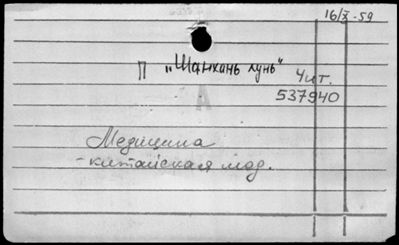 16/X-59
П „Шанхань лунь"
Чит.
537940
Медицина
- китайская мед.